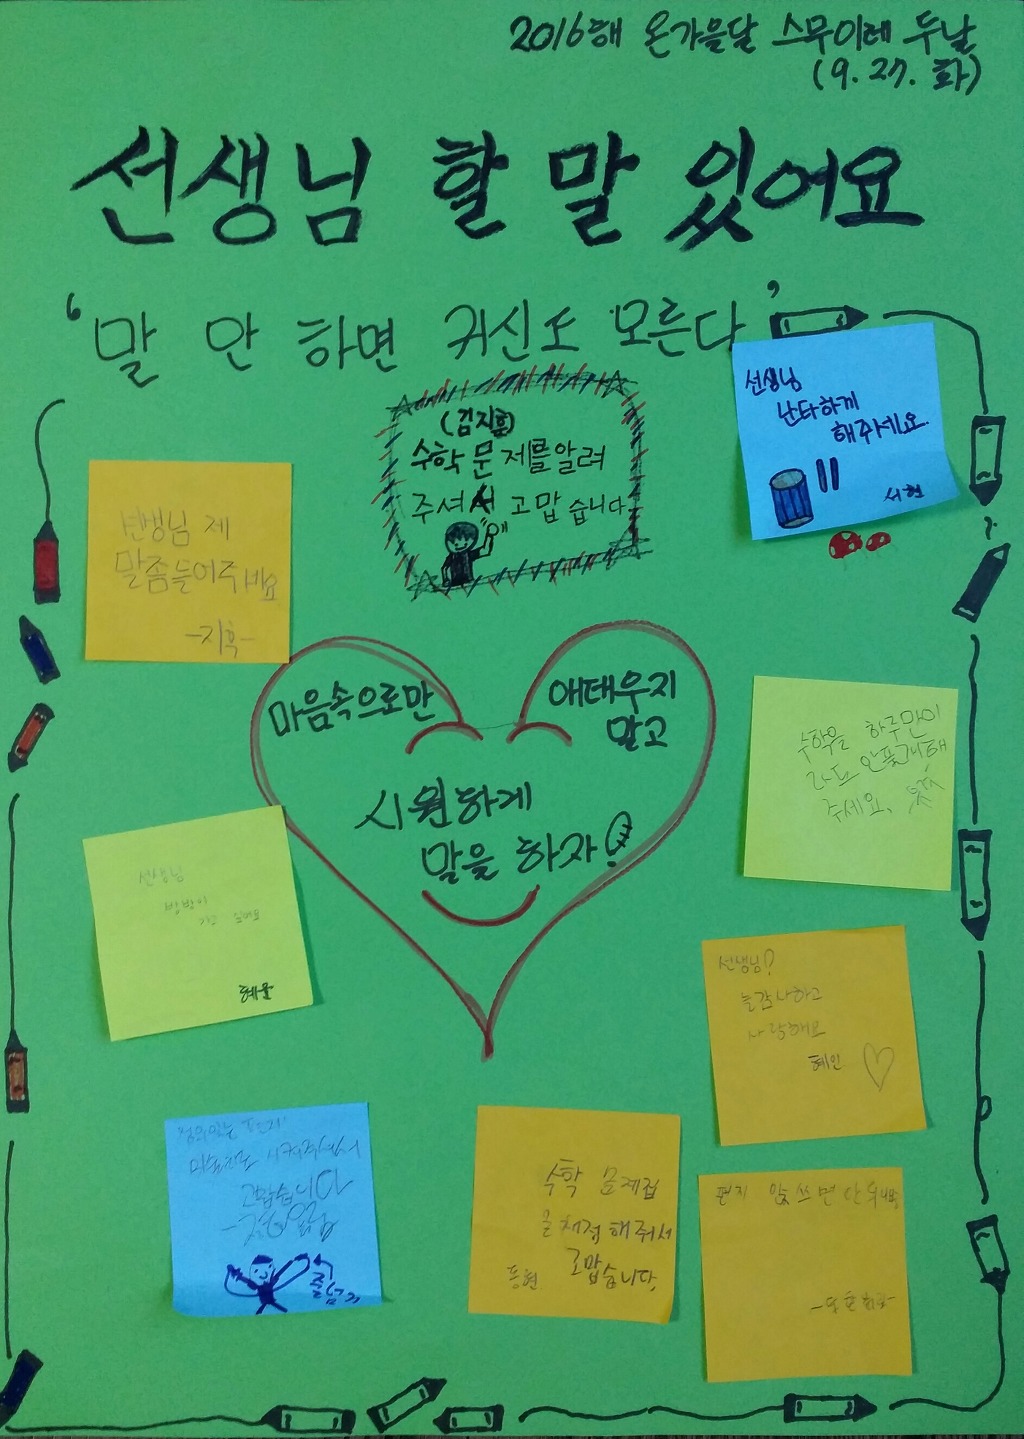 2016해 온가을달 스무이레 두날
(9. 27. 화)
선생님 할 말 있어요
'말 안 하면 귀신도 모른다'
선생님
난타하게
해주세요.
서현
(김지훈)
수학 문제를알려
주셔서 고맙습니다
선생님 제
말좀들어주세요
마음속으로만
애태우지
말고
시원하게
말을 하자!
수학을 하루만이
라도 안풀게해
주세요.
선생님
방방이
타고 싶어요
혜율
선생님?
늘감사하고
사랑해요
혜인
미술
시켜주셔서
고맙습니다
수학 문제집
을채점해줘서
고맙습니다.
편지 안쓰면 안